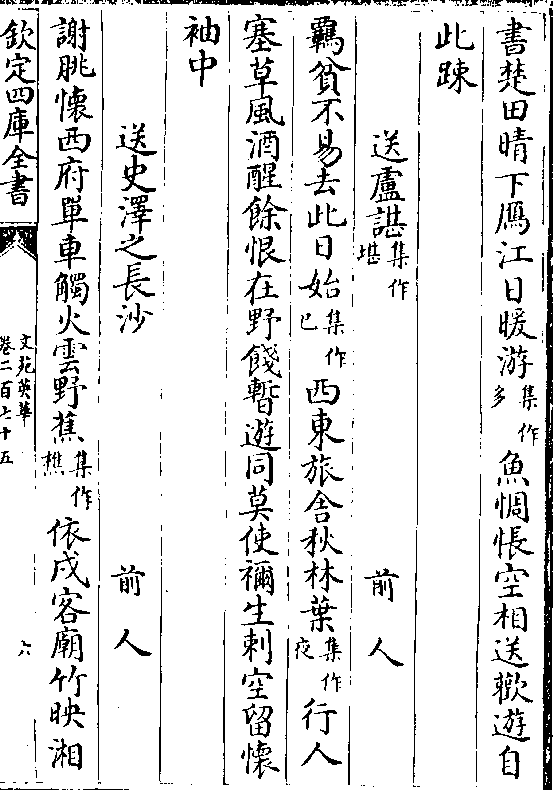 書楚田晴下鴈江日暖游集作多魚惆悵空相送歡遊自
此踈
送盧諶集作堪　前人
羈貧不易去此日始集作已西東旅舎秋林葉集作夜行人
塞草風酒醒餘恨在野餞暫遊同莫使禰生刺空留懷
袖中
送史澤之長沙　前人
謝朓懷西府單車觸火雲野蕉集作樵依戍客廟竹映湘
欽定四庫全書
文苑英華
卷二百七十五
六